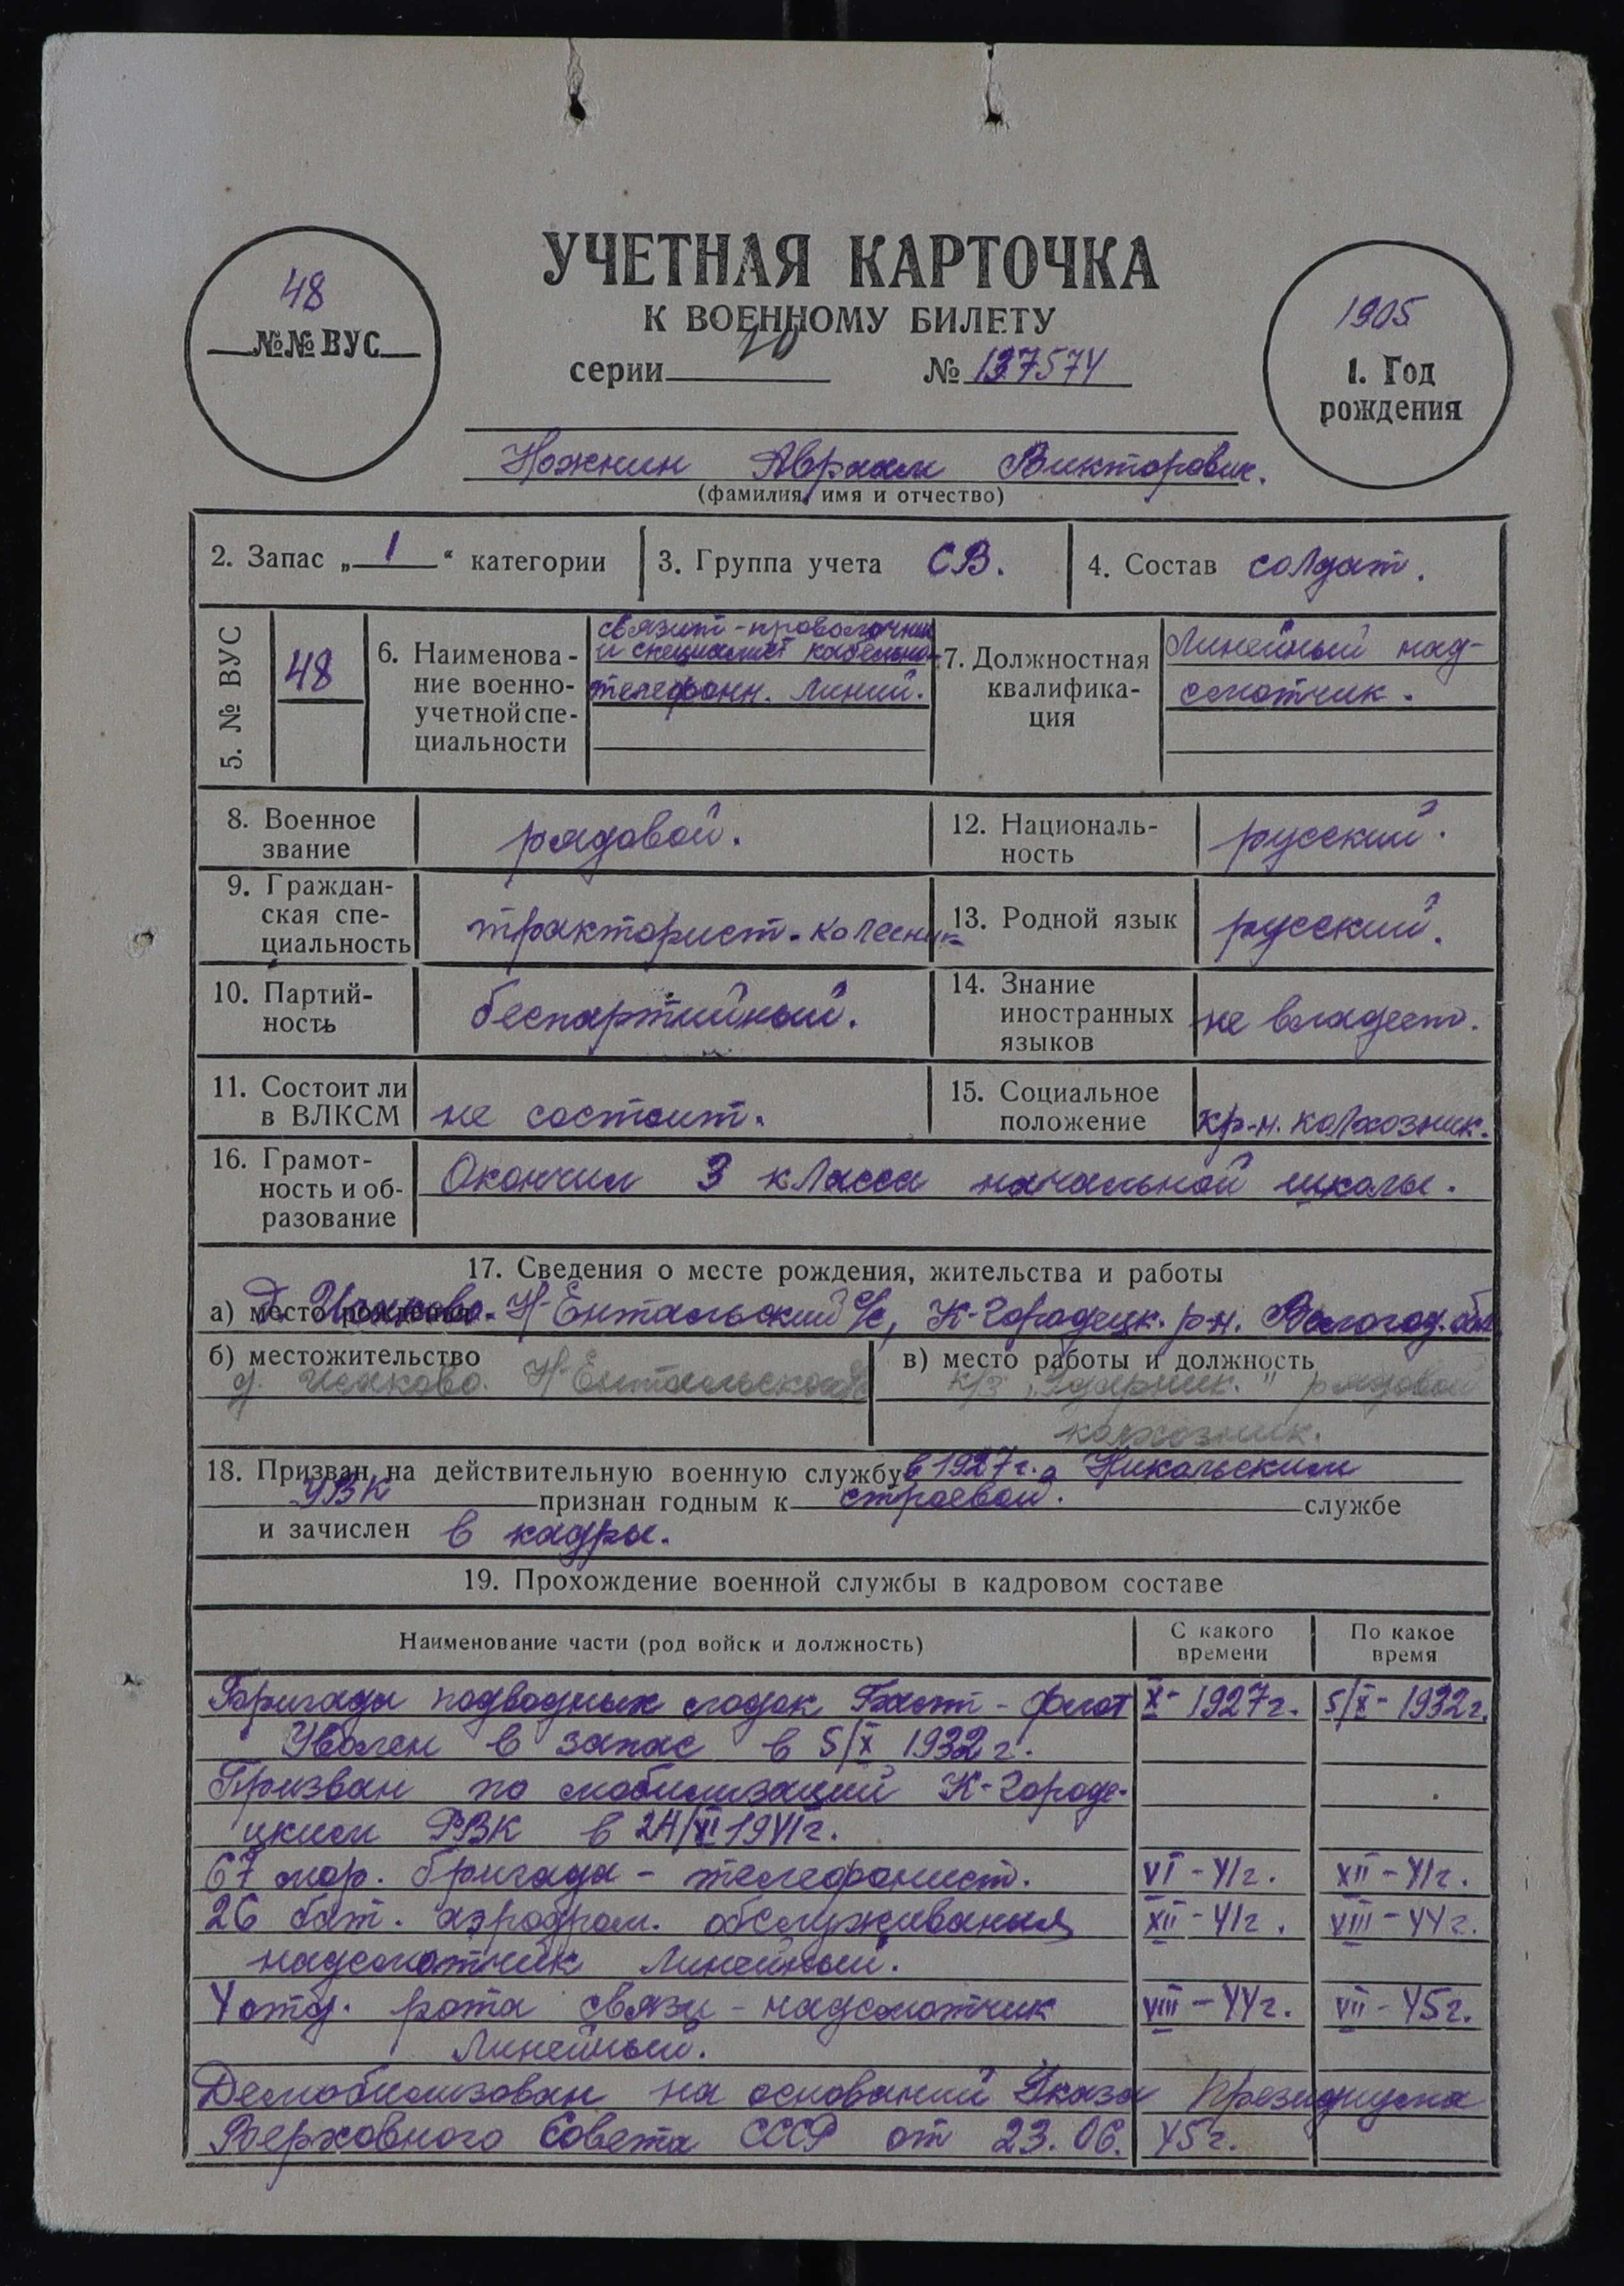 УЧЕТНАЯ КАРТОЧКА
К ВОЕННОМУ БИЛЕТУ
серии № 137574
48
№№ ВУС
1905
1. Год
рождения
Ножнин Авраам Викторович.
(фамилия, имя и отчество)
2. Запас „ 1 “ категории
3. Группа учета СВ.
4. Состав солдат.
5. № ВУС
48
6. Наименова-
ние военно-
учетной спе-
циальности
связист-проволочник
и специалист кабельно-
телефонн. линий.
7. Должностная
квалифика-
ция
Линейный над-
смотчик.
8. Военное
звание
рядовой.
12. Националь-
ность
русский.
9. Граждан-
ская спе-
циальность
тракторист-колесник
13. Родной язык русский.
10. Партий-
ность
беспартийный.
14. Знание
иностранных
языков
не владеет.
11. Состоит ли
в ВЛКСМ
не состоит.
15. Социальное
положение
кр-н. колхозник.
16. Грамот-
ность и об-
разование
Окончил 3 класса начальной школы.
17. Сведения о месте рождения, жительства и работы
а) место рождения д. Исаково. Н-Ентальский с/с, К-Городецк. р-н. Вологод. обл
б) местожительство
д. Исаково. Н-Ентальский с/с
в) место работы и должность
к/з „Ударник.“ рядовой
колхозник.
18. Призван на действительную военную службу в 1927 г. Никольским
УВК признан годным к строевой. службе
и зачислен в кадры.
19. Прохождение военной службы в кадровом составе
Наименование части (род войск и должность)
С какого
времени
По какое
время
Бригада подводных лодок Балт-флот X-1927г. 5/X-1932г.
Уволен в запас в 5/X 1932 г.
Призван по мобилизации К-Городе-
цким РВК в 24/VI 1941г.
67 мор. бригада - телефонист. VI-41г. XII-41г.
26 бат. аэродром. обслуживания XII-41г. VIII-44г.
надсмотчик линейный.
4 отд. рота связи - надсмотчик VIII-44г. VII-45г.
линейный.
Демобилизован на основании Указа Президиума
Верховного Совета СССР от 23.06.45г.